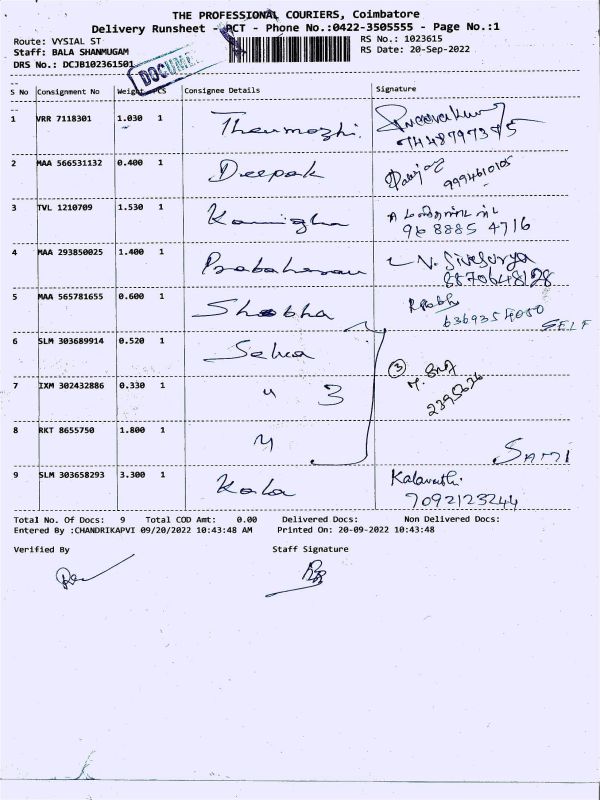 THE PROFESSIONAL COURIERS, Coimbatore
Delivery Runsheet - PCT - Phone No.:0422-3505555 - Page No.:1
Route: VYSIAL ST
RS No.: 1023615
Staff: BALA SHANMUGAM
RS Date: 20-Sep-2022
DRS No.: DCJB102361501
DOCUME
S No Consignment No Weight PCS Consignee Details Signature
1 VRR 7118301 1.030 1 Thenmozhi.
7448797375
2 MAA 566531132 0.400 1 Deepak
9994610105
3 TVL 1210709 1.530 1
968885 4716
4 MAA 293850025 1.400 1 Prabaharan V. Sivasurya
8870648128
5 MAA 565781655 0.600 1 Shobha Prabhu
6369354050
SELF
6 SLM 303689914 0.520 1 Selva
3
7 IXM 302432886 0.330 1 " 3
2395626
8 RKT 8655750 1.800 1 "
SAMI
9 SLM 303658293 3.300 1 Kala Kalavathi.
7092123244
Total No. Of Docs: 9 Total COD Amt: 0.00 Delivered Docs: Non Delivered Docs:
Entered By :CHANDRIKAPVI 09/20/2022 10:43:48 AM Printed On: 20-09-2022 10:43:48
Verified By Staff Signature